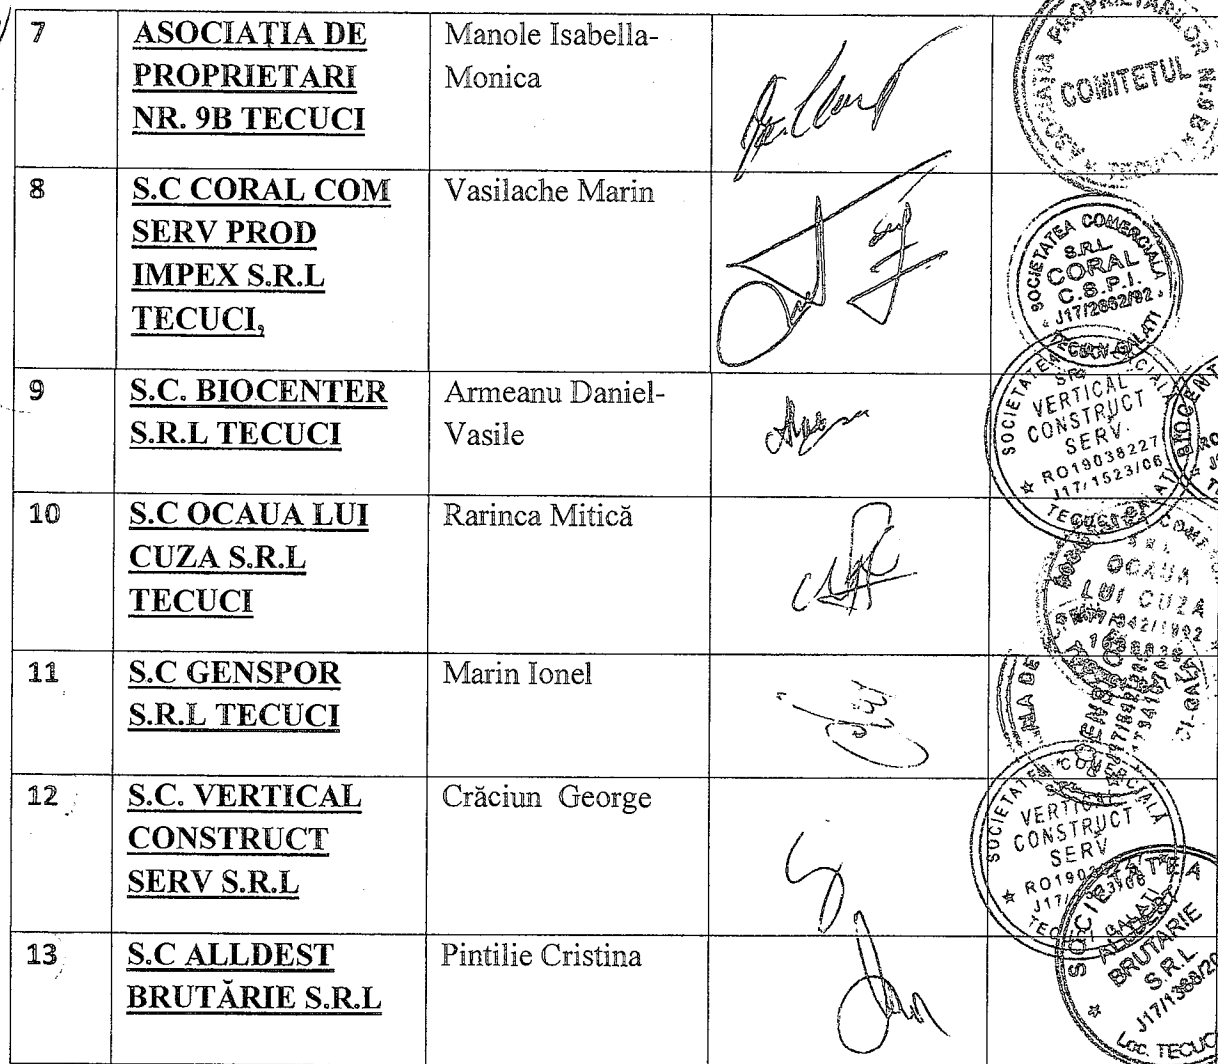 7
ASOCIAȚIA DE
PROPRIETARI
NR. 9B TECUCI
Manole Isabella-
Monica
ASOCIAȚIA PROPRIETARILOR Nr.9 B
COMITETUL
8
S.C CORAL COM
SERV PROD
IMPEX S.R.L
TECUCI,
Vasilache Marin
SOCIETATEA COMERCIALA
S.R.L.
CORAL
C.S.P.I.
J17/2662/92
9
S.C. BIOCENTER
S.R.L TECUCI
Armeanu Daniel-
Vasile
VERTICAL
CONSTRUCT
SERV.
RO19038227
J17/1523/06
10
S.C OCAUA LUI
CUZA S.R.L
TECUCI
Rarinca Mitică
OCAUA
LUI CUZA
11
S.C GENSPOR
S.R.L TECUCI
Marin Ionel
12
S.C. VERTICAL
CONSTRUCT
SERV S.R.L
Crăciun George
SOCIETATEA COMERCIALĂ
VERTICAL
CONSTRUCT
SERV
13
S.C ALLDEST
BRUTĂRIE S.R.L
Pintilie Cristina
SOCIETATEA
BRUTARIE
S.R.L.
Loc. TECUC